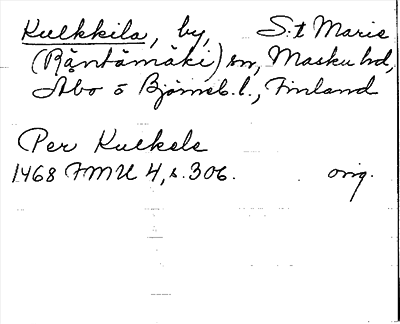 Kulkkila, by, S:t Marie
(Räntämäki) sn, Masku hd,
Åbo o Björneb. l., Finland
Per Kulkele
1468 FMU 4, s. 306. orig.